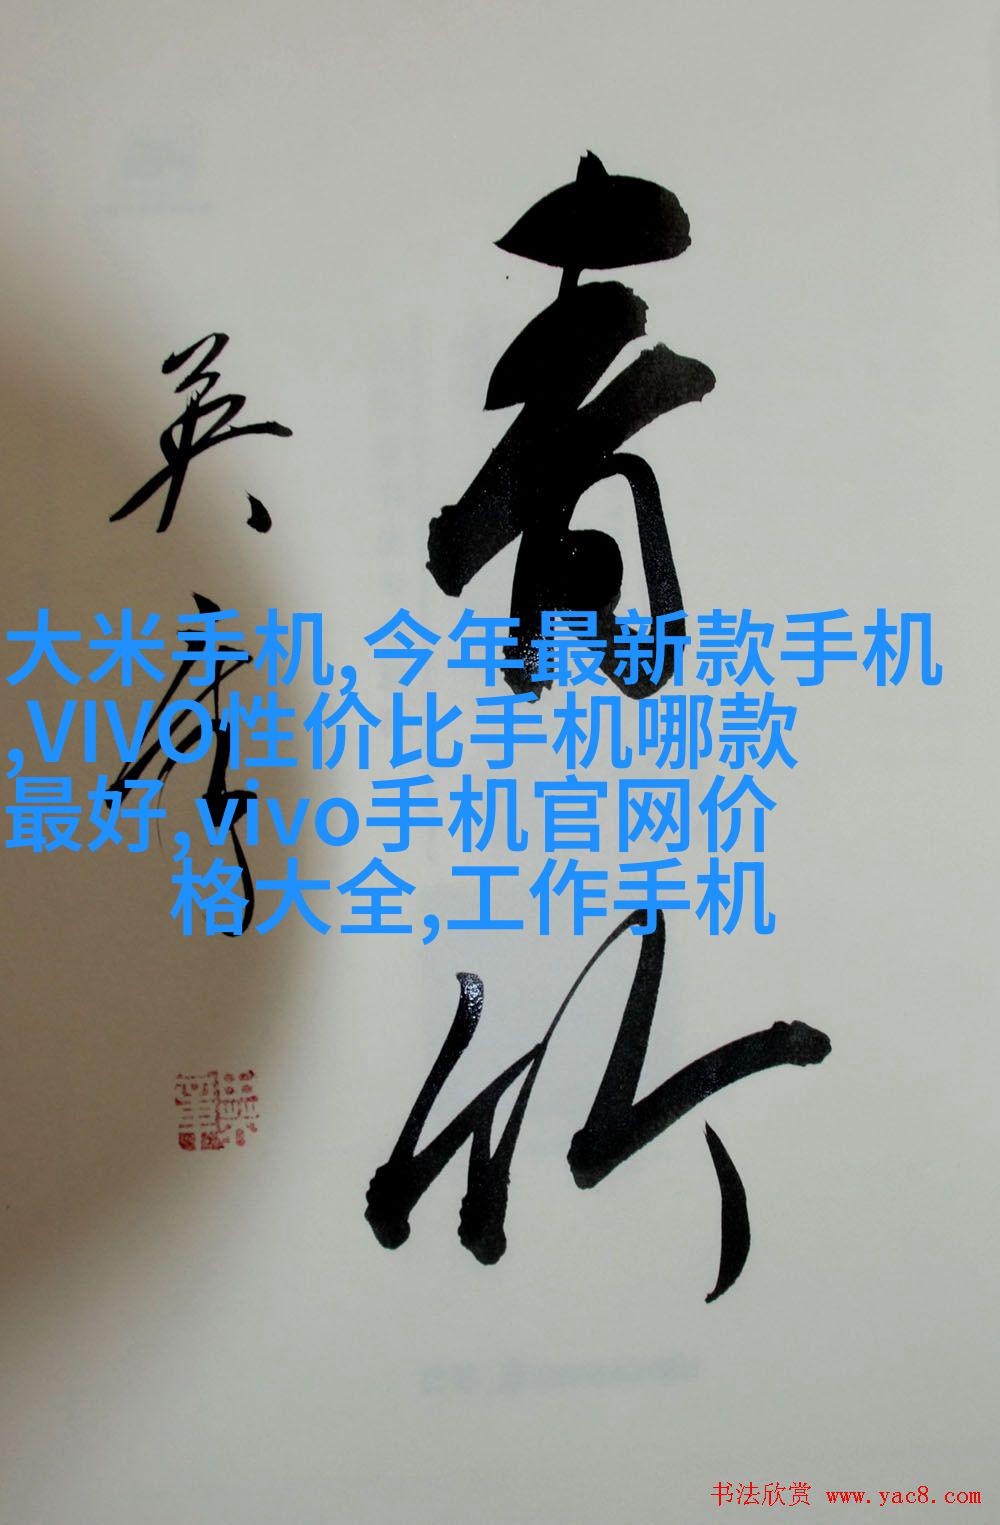 青竹
英
大米手机,今年最新款手机
,VIVO性价比手机哪款
最好,vivo手机官网价
格大全,工作手机
书法欣赏 www.yac8.com